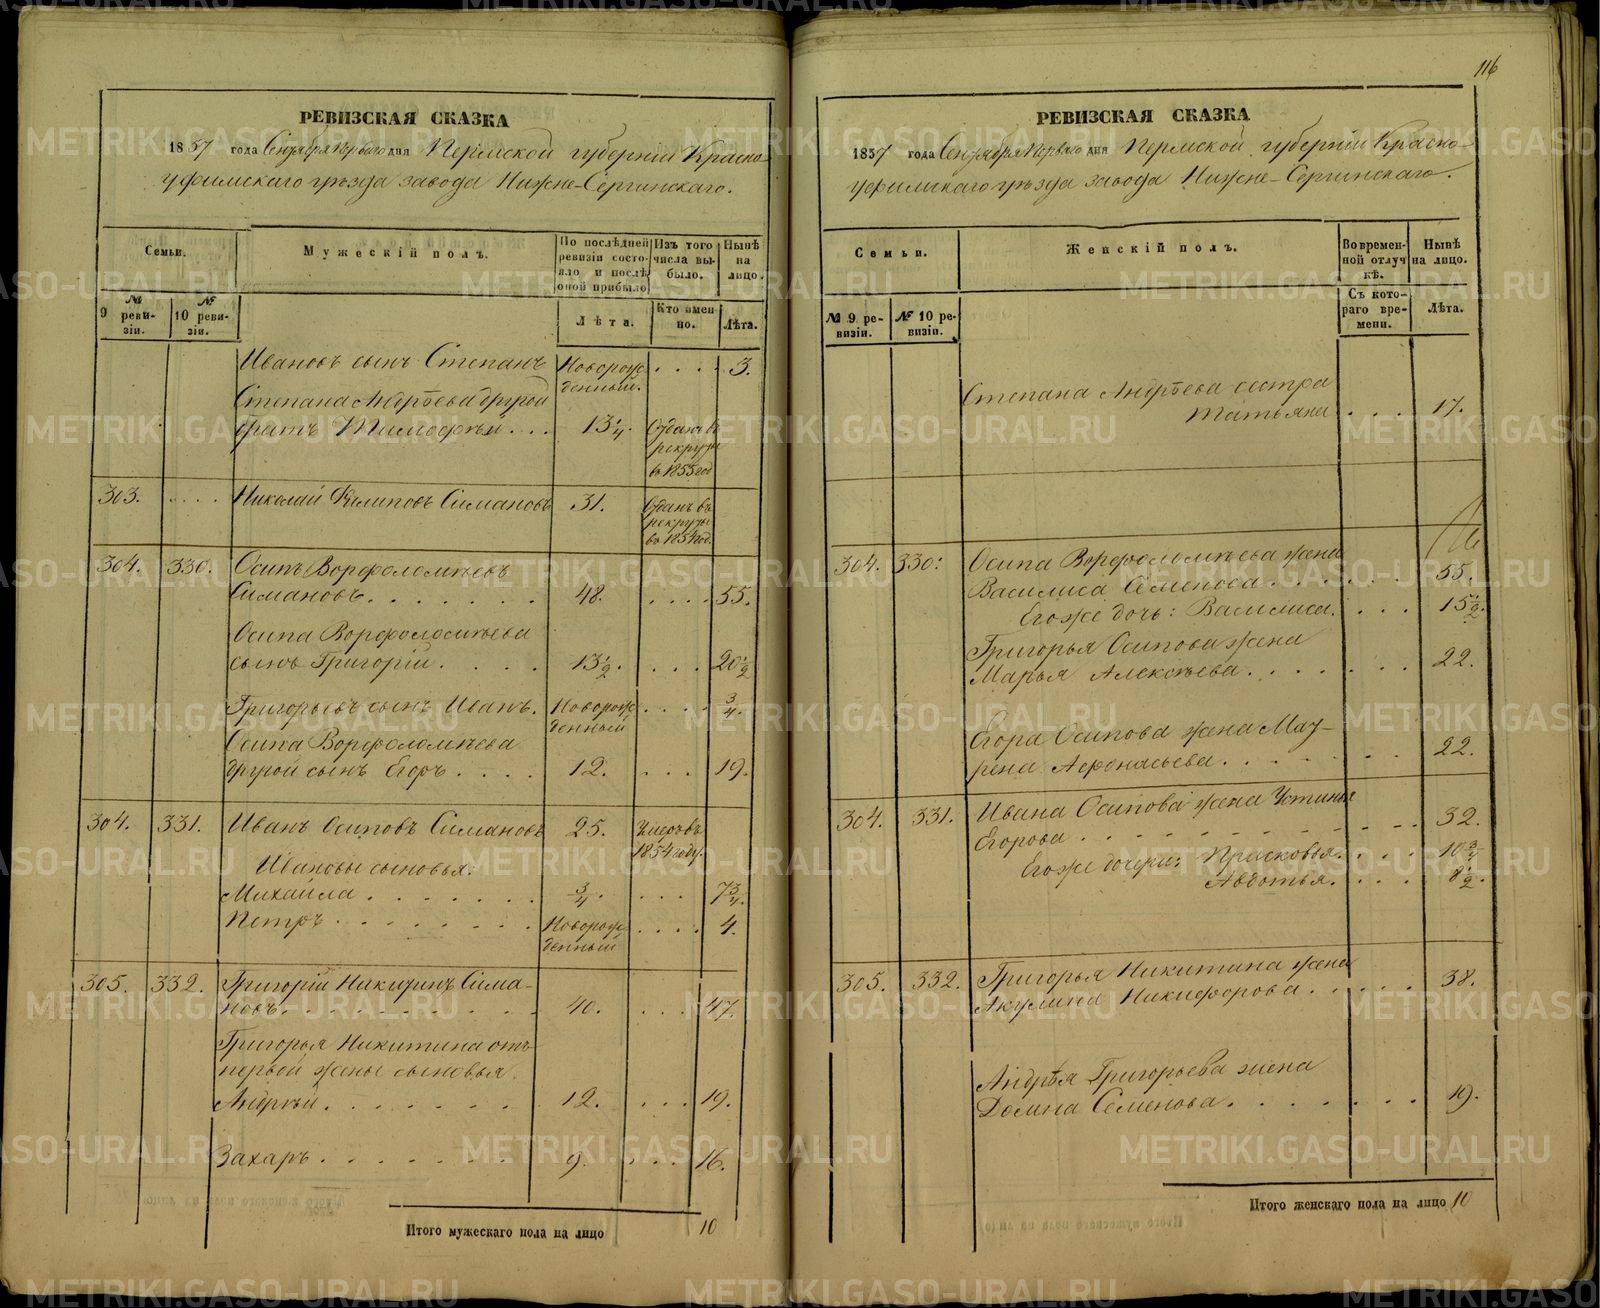 РЕВИЗСКАЯ СКАЗКА
1857 года Сентября Первого дня Пермской губернiи Красно-
уфимскаго уѣзда завода Нижне-Сергинскаго.
Семьи.
Мужескiй полъ.
По послѣдней ревизiи состояло и послѣ оной прибыло
Изъ того числа выбыло.
Нынѣ на лицо.
№ 9 ревизiи.
№ 10 ревизiи.
Лѣта.
Кто именно.
Лѣта.
Ивановъ сынъ Степанъ Новорожденный. . . . . 3.
Степана Андрѣева другой
братъ Тимофѣй . . . 13 1/4. Отданъ въ рекруты въ 1855 год
303. . . . . Николай Филиповъ Симановъ 31. Отданъ въ рекруты въ 1854 год.
304. 330. Осипъ Ворфоломѣевъ
Симановъ. . . . . . . 48. . . . . 55.
Осипа Ворфоломѣева
сынъ Григорiй. . . . . 13 1/2. . . . 20 1/2
Григорьевъ сынъ Иванъ. Новорожденный . . . . 3/4.
Осипа Ворфоломѣева
другой сынъ Егоръ. . . . 12. . . . 19.
304. 331. Иванъ Осиповъ Симановъ 25. Умеръ въ 1854 году.
Ивановы сыновья:
Михайла . . . . . . . 3/4. . . . 7 3/4.
Петръ . . . . . . . . Новорожденный . . . . 4.
305. 332. Григорiй Никитинъ Сима-
новъ. . . . . . . . . 40. . . . 47.
Григорья Никитина отъ
первой жены сыновья
Андрѣй. . . . . . . 12. . . . 19.
Захаръ. . . . . . . 9. . . . 16.
Итого мужескаго пола на лицо 10
116
РЕВИЗСКАЯ СКАЗКА
1857 года Сентября Перваго дня Пермской губернiи Красно-
уфимскаго уѣзда завода Нижне-Сергинскаго.
Семьи.
Женскiй полъ.
Во временной отлучкѣ.
Нынѣ на лицо.
№ 9 ревизiи.
№ 10 ревизiи.
Съ котораго времени.
Лѣта.
Степана Андрѣева сестра
Татьяна . . . . 17.
304. 330: Осипа Ворфоломѣева жена
Василиса Семенова . . . . . . . 55.
Его же дочь: Василиса. . . . 15 1/2.
Григорья Осипова жена
Марья Алексѣева. . . . . . . 22.
Егора Осипова жена Мау-
рена Афонасьева. . . . . . . 22.
304. 331. Ивана Осипова жена Устинья
Егорова . . . . . . . . . . . 32.
Его же дочери: Прасковья. . . . 10 3/4
Авдотья. . . . . 8 1/2.
305. 332. Григорья Никитина жена
Акулина Никифорова. . . . . . 38.
Андрѣя Григорьева жена
Домна Семенова. . . . . . . 19.
Итого женскаго пола на лицо 10
METRIKI.GASO-URAL.RU